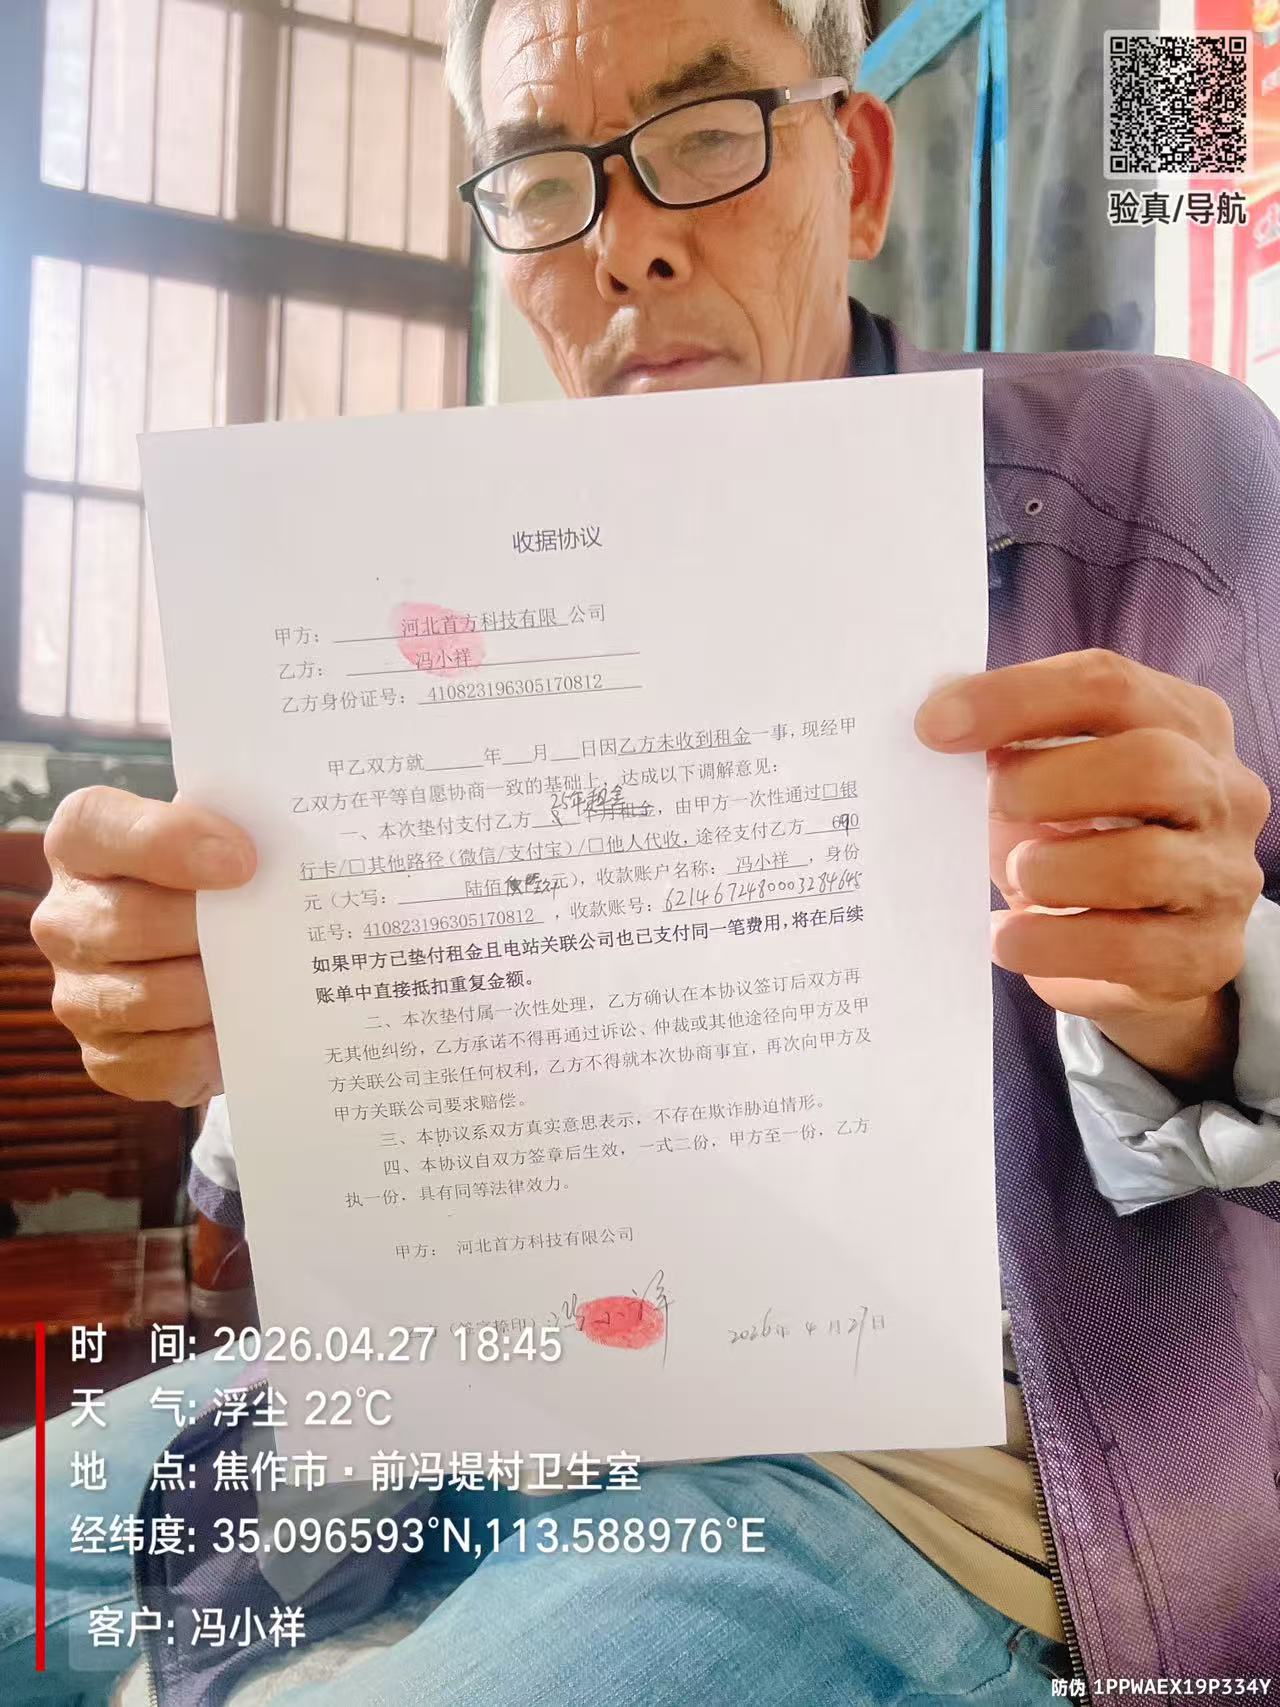 验真/导航
收据协议
甲方： 河北首方科技有限 公司
乙方： 冯小祥
乙方身份证号： 410823196305170812
甲乙双方就______年___月___日因乙方未收到租金一事，现经甲
乙双方在平等自愿协商一致的基础上，达成以下调解意见：
25年租金
一、本次垫付支付乙方 8 个月租金，由甲方一次性通过□银
行卡/□其他路径（微信/支付宝）/□他人代收，途径支付乙方 690
元（大写： 陆佰 元），收款账户名称： 冯小祥 ，身份
证号：410823196305170812 ，收款账号：6214672480003284645
如果甲方已垫付租金且电站关联公司也已支付同一笔费用，将在后续
账单中直接抵扣重复金额。
二、本次垫付属一次性处理，乙方确认在本协议签订后双方再
无其他纠纷，乙方承诺不得再通过诉讼、仲裁或其他途径向甲方及甲
方关联公司主张任何权利，乙方不得就本次协商事宜，再次向甲方及
甲方关联公司要求赔偿。
三、本协议系双方真实意思表示，不存在欺诈胁迫情形。
四、本协议自双方签章后生效，一式二份，甲方至一份，乙方
执一份，具有同等法律效力。
甲方： 河北首方科技有限公司
（签字捺印）：冯小祥 2026年 4月27日
时 间: 2026.04.27 18:45
天 气: 浮尘 22℃
地 点: 焦作市·前冯堤村卫生室
经纬度: 35.096593°N,113.588976°E
客户: 冯小祥
防伪 1PPWAEX19P334Y